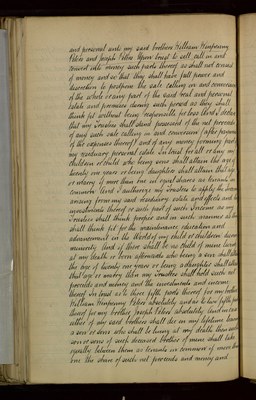 and personal unto my said brothers William Wimpenny
Peters and Joseph Peters Upon trust to sell call in and
convert into money such parts thereof as shall not consist
of money and so that they shall have full power and
discretion to postpone the sale calling in and conversion
of the whole or any part of the said real and personal
estate and premises during such period as they shall
think fit without being responsible for loss And I declare
that my Trustees shall stand possessed of the net proceeds
of any such sale calling in and conversion (after payment
of the expenses thereof) and of any money forming part
my residuary personal estate In trust for all or any my
children or child who being sons shall attain the age of
twenty one years or being daughters shall attain that age
or marry if more than one in equal shares as tenants in
common And I authorize my Trustees to apply the
arising from my said residuary estate and effects and
investments thereof or such part of such Income as my
Trustees shall think proper and in such manner as
shall think fit for the maintenance education and
advancement in the World of my child or children
minority And if there shall be no child of mine living
at my death or born afterwards who being a son shall attain
the age of twenty one years or being a daughter shall attain
that age or marry then my Trustees shall hold such net
proceeds and money and the investments and income
thereof In trust as to three fifth parts thereof for my brother
William Wimpenny Peters absolutely and as to two fifths parts
thereof for my brother Joseph Peters absolutely And in case
either of my said brothers shall die in my lifetime leaving
a son or sons who shall be living at my death then such
son or sons of such deceased brother of mine shall take
equally between them as tenants in common if more than
one the share of such net proceeds and money and